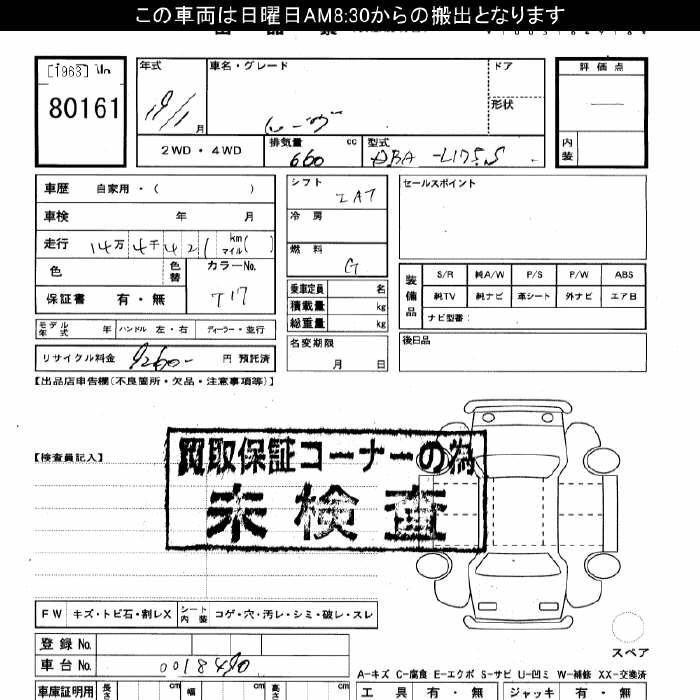 この車両は日曜日AM8:30からの搬出となります
[1963]
80161
年式
車名・グレード
ドア
形状
月
2WD・4WD
排気量
660
cc
型式
DBA-L175S
評価点
内装
車歴 自家用・( )
車検 年 月
走行 14万 4千 4 2 1 km マイル( )
色
色替
カラーNo.
T17
保証書 有・無
モデル年式 年
ハンドル 左・右
ディーラー・並行
リサイクル料金 9260- 円 預託済
シフト
IAT
冷房
燃料
G
乗車定員 名
積載量 kg
総重量 kg
名変期限
月 日
セールスポイント
装備品
S/R 純A/W P/S P/W ABS
純TV 純ナビ 革シート 外ナビ エアB
ナビ型番:
後日品
【出品店申告欄(不良箇所・欠品・注意事項等)】
【検査員記入】
買取保証コーナーの為
未検査
FW キズ・トビ石・割レX
シート内装 コゲ・穴・汚レ・シミ・破レ・スレ
スペア
登録No.
車台No. 0018490
A-キズ C-腐食 E-エクボ S-サビ U-凹ミ W-補修 XX-交換済
車庫証明用 長さ cm 幅 cm 高さ cm
工具 有・無 ジャッキ 有・無